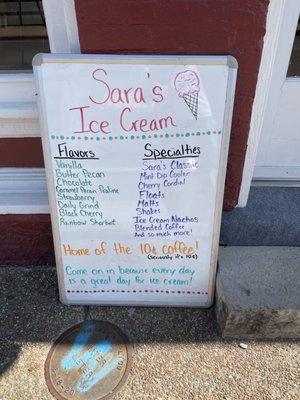 Sara's
Ice Cream
Flavors
Vanilla
Butter Pecan
Chocolate
Caramel Pecan Praline
Strawberry
Daily Grind
Black Cherry
Rainbow Sherbet
Specialties
Sara's Classic
Mint Dip Cooler
Cherry Cordial
Floats
Malts
Shakes
Ice Cream Nachos
Blended Coffee
And so much more!
Home of the 10¢ coffee!
(Seriously it's 10¢)
Come on in because every day
is a great day for ice cream!